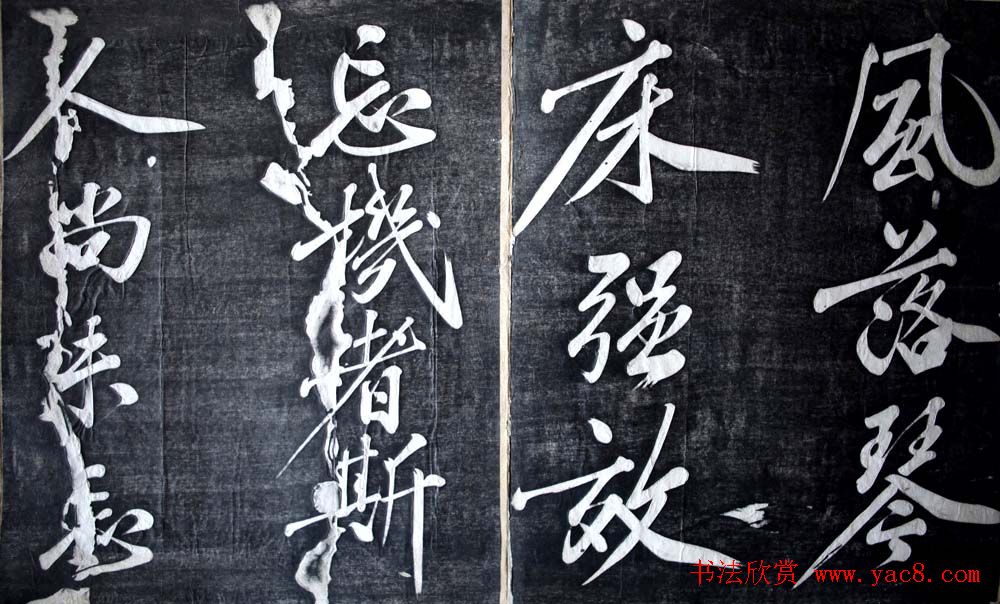 風落琴
床強效
忘機者斯
人尚未忘
书法欣赏 www.yac8.com